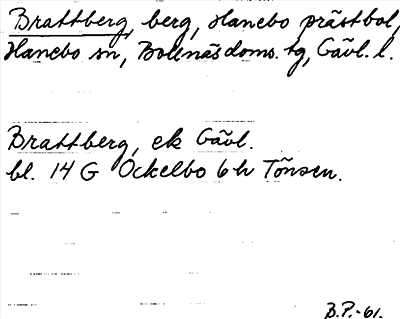 Brattberg, berg, Hanebo prästbol,
Hanebo sn, Bollnäs doms. tg, Gävl. l.
Brattberg, ek Gävl.
bl. 14 G Ockelbo 6h Tönsen.
B.P.-61.